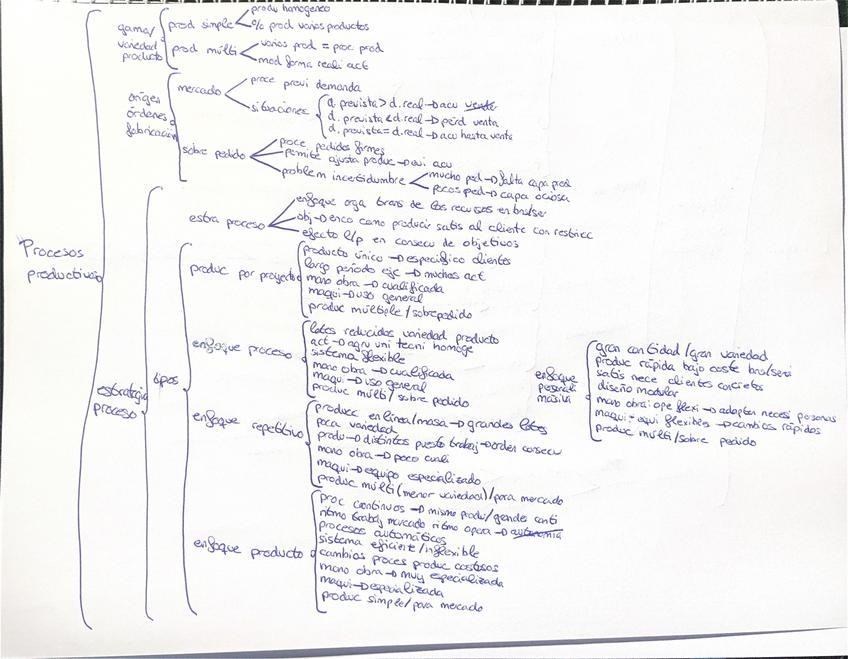 Procesos
productivos
gama/
variedad
producto
prod simple
produ homogeneo
prod varios productos
prod múlti
varios prod = proc prod
mod forma reali act
origen
órdenes
fabricación
mercado
proce previ demanda
situaciones
d. prevista > d. real → acu
d. prevista < d. real → perd venta
d. prevista = d. real → acu hasta venta
sobre pedido
proce pedidos firmes
permite ajusta produc → evi acu
problem incertidumbre
mucho ped → falta capa prod
pocos ped → capa ociosa
estrategia
proceso
estra proceso
enfoque orga trans de los recursos en bns/ser
obj → enco como producir satis al cliente con restricc
efecto l/p en consecu de objetivos
tipos
produc por proyecto
producto único → específico clientes
largo período ejc → muchas act
mano obra → cualificada
maqui → uso general
produc múltiple/sobrepedido
enfoque proceso
lotes reducidos variedad producto
act → agru uni tecni homoge
sistema flexible
mano obra → cualificada
maqui → uso general
produc multi/sobre pedido
enfoque repetitivo
producc en línea/masa → grandes lotes
poca variedad
produ → distintos puesto trabaj → orden consecu
mano obra → poco cuali
maqui → equipo especializado
produc múlti (menor variedad)/para mercado
enfoque producto
proc continuos → mismo produ/grandes canti
ritmo trabaj marcado ritmo opera →
procesos automáticos
sistema eficiente/inflexible
cambios proces produc costosos
mano obra → muy especializada
maqui → especializada
produc simple/para mercado
enfoque
personali
masiva
gran cantidad/gran variedad
produc rápida bajo coste bns/servi
satis nece clientes concretos
diseño modular
mano obra: ope flexi → adaptan necesi personas
maqui: equi flexibles → cambios rápidos
produc multi/sobre pedido